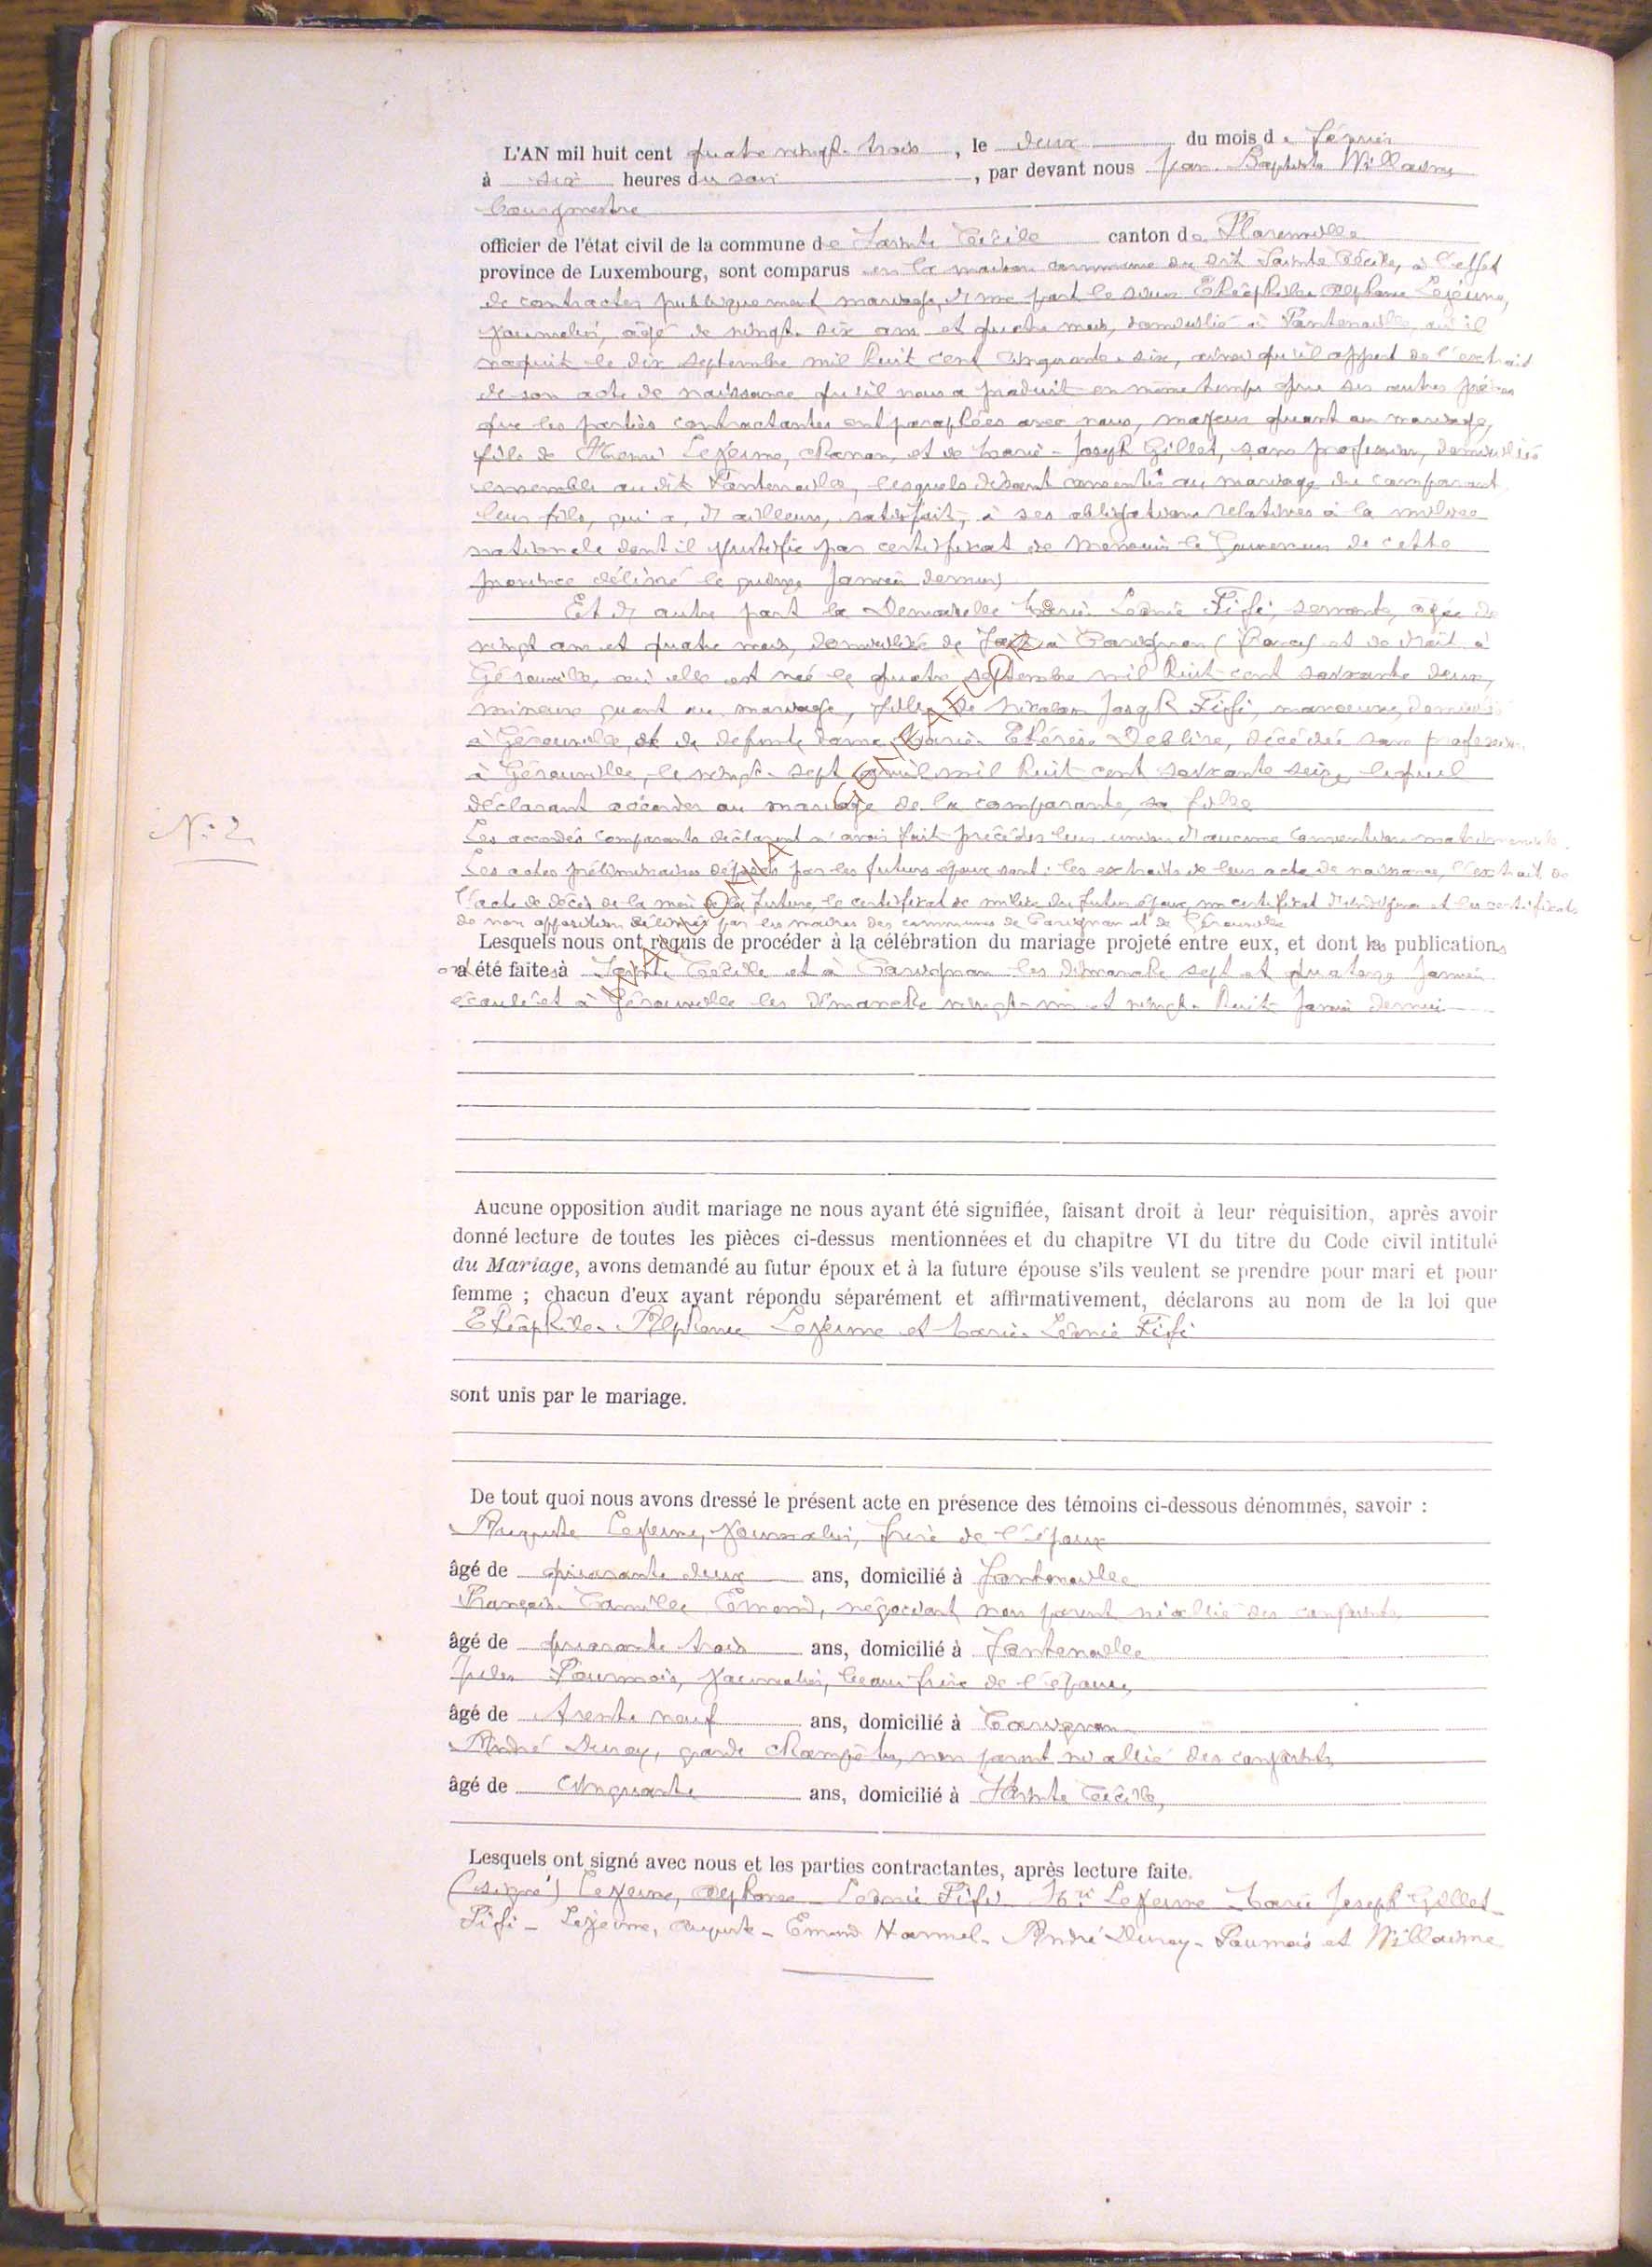 L'AN mil huit cent quatre vingt-trois, le deux du mois de février
à six heures du soir, par devant nous Jean-Baptiste Willaime
bourgmestre
officier de l'état civil de la commune de Sainte Cécile canton de Florenville
province de Luxembourg, sont comparus en la maison commune du dit Sainte Cécile, à l'effet
de contracter publiquement mariage, d'une part le sieur Théophile Alphonse Lejeune,
journalier, âgé de vingt-six ans et quatre mois, domicilié à Fontenoille, où il
naquit le dix septembre mil huit cent cinquante-six, ainsi qu'il appert de l'extrait
de son acte de naissance qu'il nous a produit en même temps que ses autres pièces
que les parties contractantes ont paraphées avec nous, majeur quant au mariage,
fils de Henri Lejeune, et de Marie-Joseph Gillet, sans profession, domiciliés
ensemble au dit Fontenoille, lesquels disant consentir au mariage du comparant
leur fils, qui a, d'ailleurs, satisfait, à ses obligations relatives à la milice
nationale dont il justifie par certificat de Monsieur le Gouverneur de cette
province délivré le quinze Janvier dernier
Et d'autre part la Demoiselle Marie Léonie Fifi, servante, âgée de
vingt ans et quatre mois, domiciliée de fait à Carignan (France) et de droit à
Gérouville, où elle est née le quatre septembre mil huit cent soixante deux,
mineure quant au mariage, fille de Nicolas Joseph Fifi, manoeuvre, domicilié
à Gérouville, et de défunte dame Marie-Thérèse Deblire, décédée sans profession
à Gérouville, le vingt-sept avril mil huit cent soixante seize, lequel
déclarant accéder au mariage de la comparante, sa fille
N° 2
Les accordés comparants déclarent n'avoir fait précéder leur union d'aucune convention matrimoniale.
Les actes préliminaires déposés par les futurs époux sont : les extraits de leur acte de naissance, l'extrait de
l'acte de décès de la mère de la future, le certificat de milice du futur époux, un certificat d'indigence et les certificats
de non opposition délivrés par les maires des communes de Carignan et de Gérouville
Lesquels nous ont requis de procéder à la célébration du mariage projeté entre eux, et dont les publications
ont été faites à Sainte Cécile et à Carignan les dimanche sept et quatorze Janvier
écoulé et à Gérouville les Dimanche vingt-un et vingt-huit Janvier dernier
WALLONIA GENEAFLOR
Aucune opposition audit mariage ne nous ayant été signifiée, faisant droit à leur réquisition, après avoir
donné lecture de toutes les pièces ci-dessus mentionnées et du chapitre VI du titre du Code civil intitulé
du Mariage, avons demandé au futur époux et à la future épouse s'ils veulent se prendre pour mari et pour
femme ; chacun d'eux ayant répondu séparément et affirmativement, déclarons au nom de la loi que
Théophile-Alphonse Lejeune et Marie-Léonie Fifi
sont unis par le mariage.
De tout quoi nous avons dressé le présent acte en présence des témoins ci-dessous dénommés, savoir :
Auguste Lejeune, journalier, frère de l'époux
âgé de quarante deux ans, domicilié à Fontenoille
François-Camille Emond, négociant non parent ni allié des conjoints
âgé de quarante trois ans, domicilié à Fontenoille
Jules Poumois, journalier, beau-frère de l'époux
âgé de trente neuf ans, domicilié à Carignan
André Duroy, garde champêtre, non parent ni allié des conjoints
âgé de cinquante ans, domicilié à Sainte Cécile,
Lesquels ont signé avec nous et les parties contractantes, après lecture faite.
(signé) Lejeune, Alphonse - Léonie Fifi - Hri Lejeune - Marie Joseph Gillet -
Fifi - Lejeune, Auguste - Emond - André Duroy - Poumois et Willaime